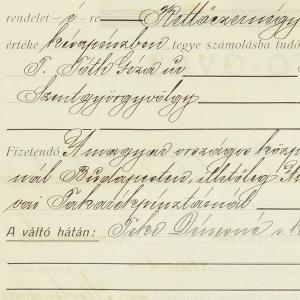 rendelet – é – re Kettőezernégy
értéke készpénzben tegye számolásba
T. Tóth Geza ur
Szentgyörgyvölgy
Fizetendő A magyar országos közp
nál Budapesten, illetőleg
vai Takarékpénztárnál
A váltó hátán: